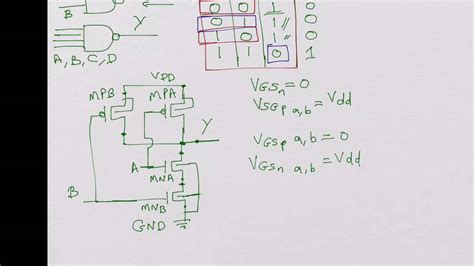 B
Y
A, B, C, D
1 0 1 0
0 1 1 // 0
1 0 1 // 0
1 1 0 1
VDD
MPB MPA
Y
A
MNA
B
MNB
GND
VGSn = 0
VSGp a,b = Vdd
VGSp a,b = 0
VGSn a,b = Vdd